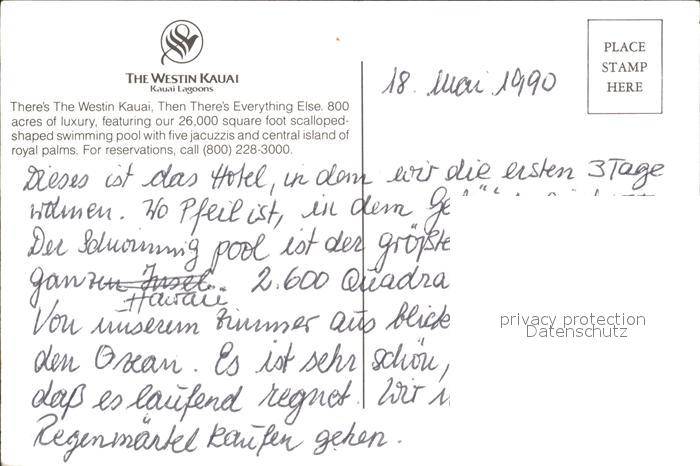 THE WESTIN KAUAI
Kauai Lagoons
There's The Westin Kauai, Then There's Everything Else. 800
acres of luxury, featuring our 26,000 square foot scalloped-
shaped swimming pool with five jacuzzis and central island of
royal palms. For reservations, call (800) 228-3000.
PLACE
STAMP
HERE
18. Mai 1990
Dieses ist das Hotel, in dem wir die ersten 3 Tage
wohnen. Wo Pfeil ist, in dem Ge
Der Schwimmig pool ist der größte
ganzen Insel. 2.600 Quadra
Hawaii
Von unserem Zimmer aus blick
den Ozean. Es ist sehr schön,
daß es laufend regnet. Wir
Regenmärtel kaufen gehen.
privacy protection
Datenschutz